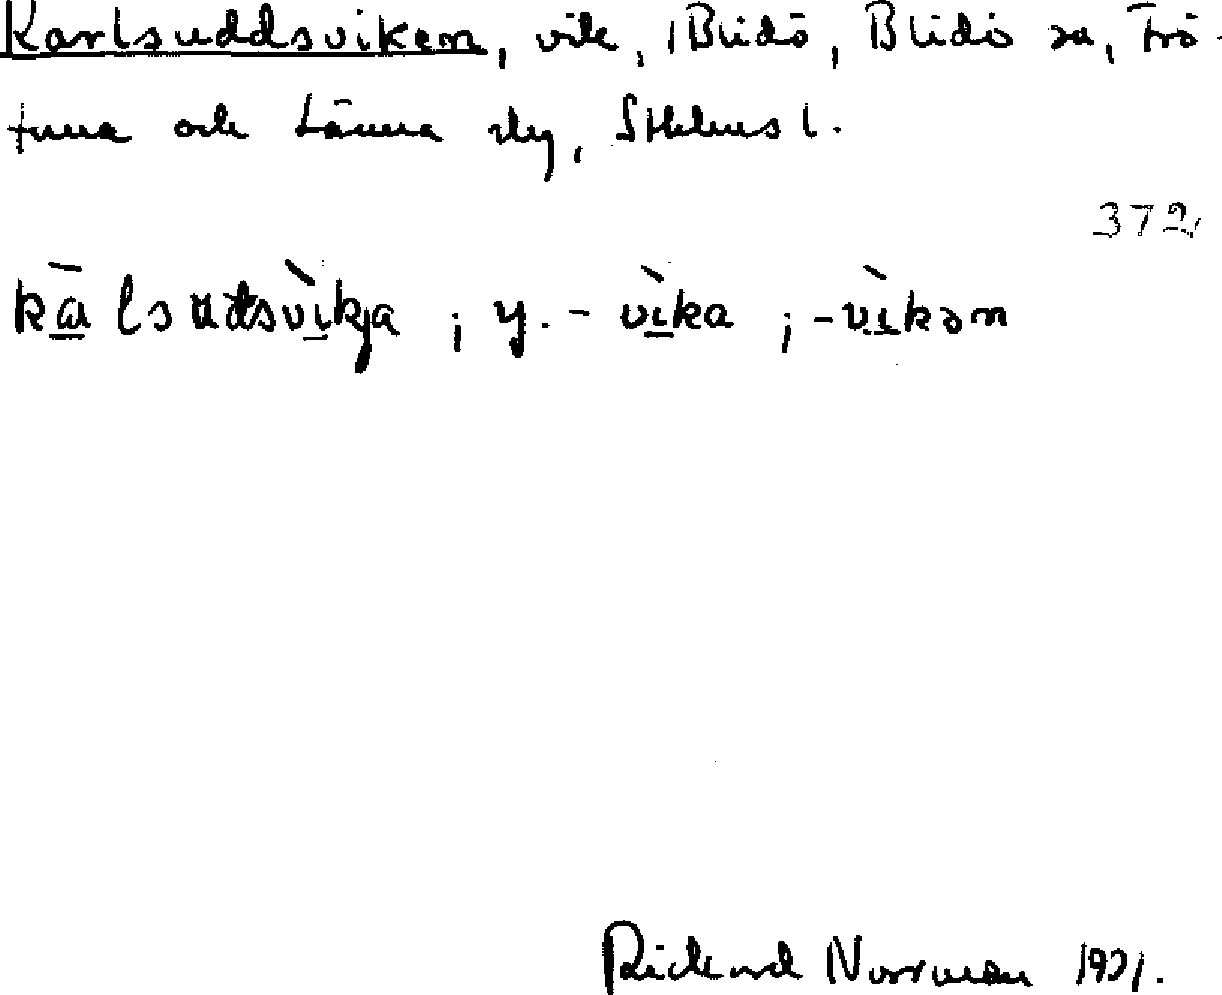 Karlsuddsviken, vik, Blidö, Blidö sn, Frö-
tuna och Länna slg, Sthlms l.
372
kālsudsvìkja ; y. - vìka ; -vìkən
Rickard Norrman 1931.